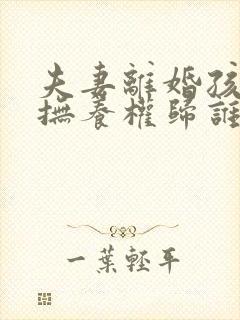 夫妻離婚孩
撫養權歸誰
一葉輕平